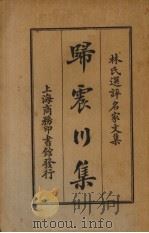 林氏選評名家文集
歸震川集
上海商務印書館發行
mtoou.info edzhi.com